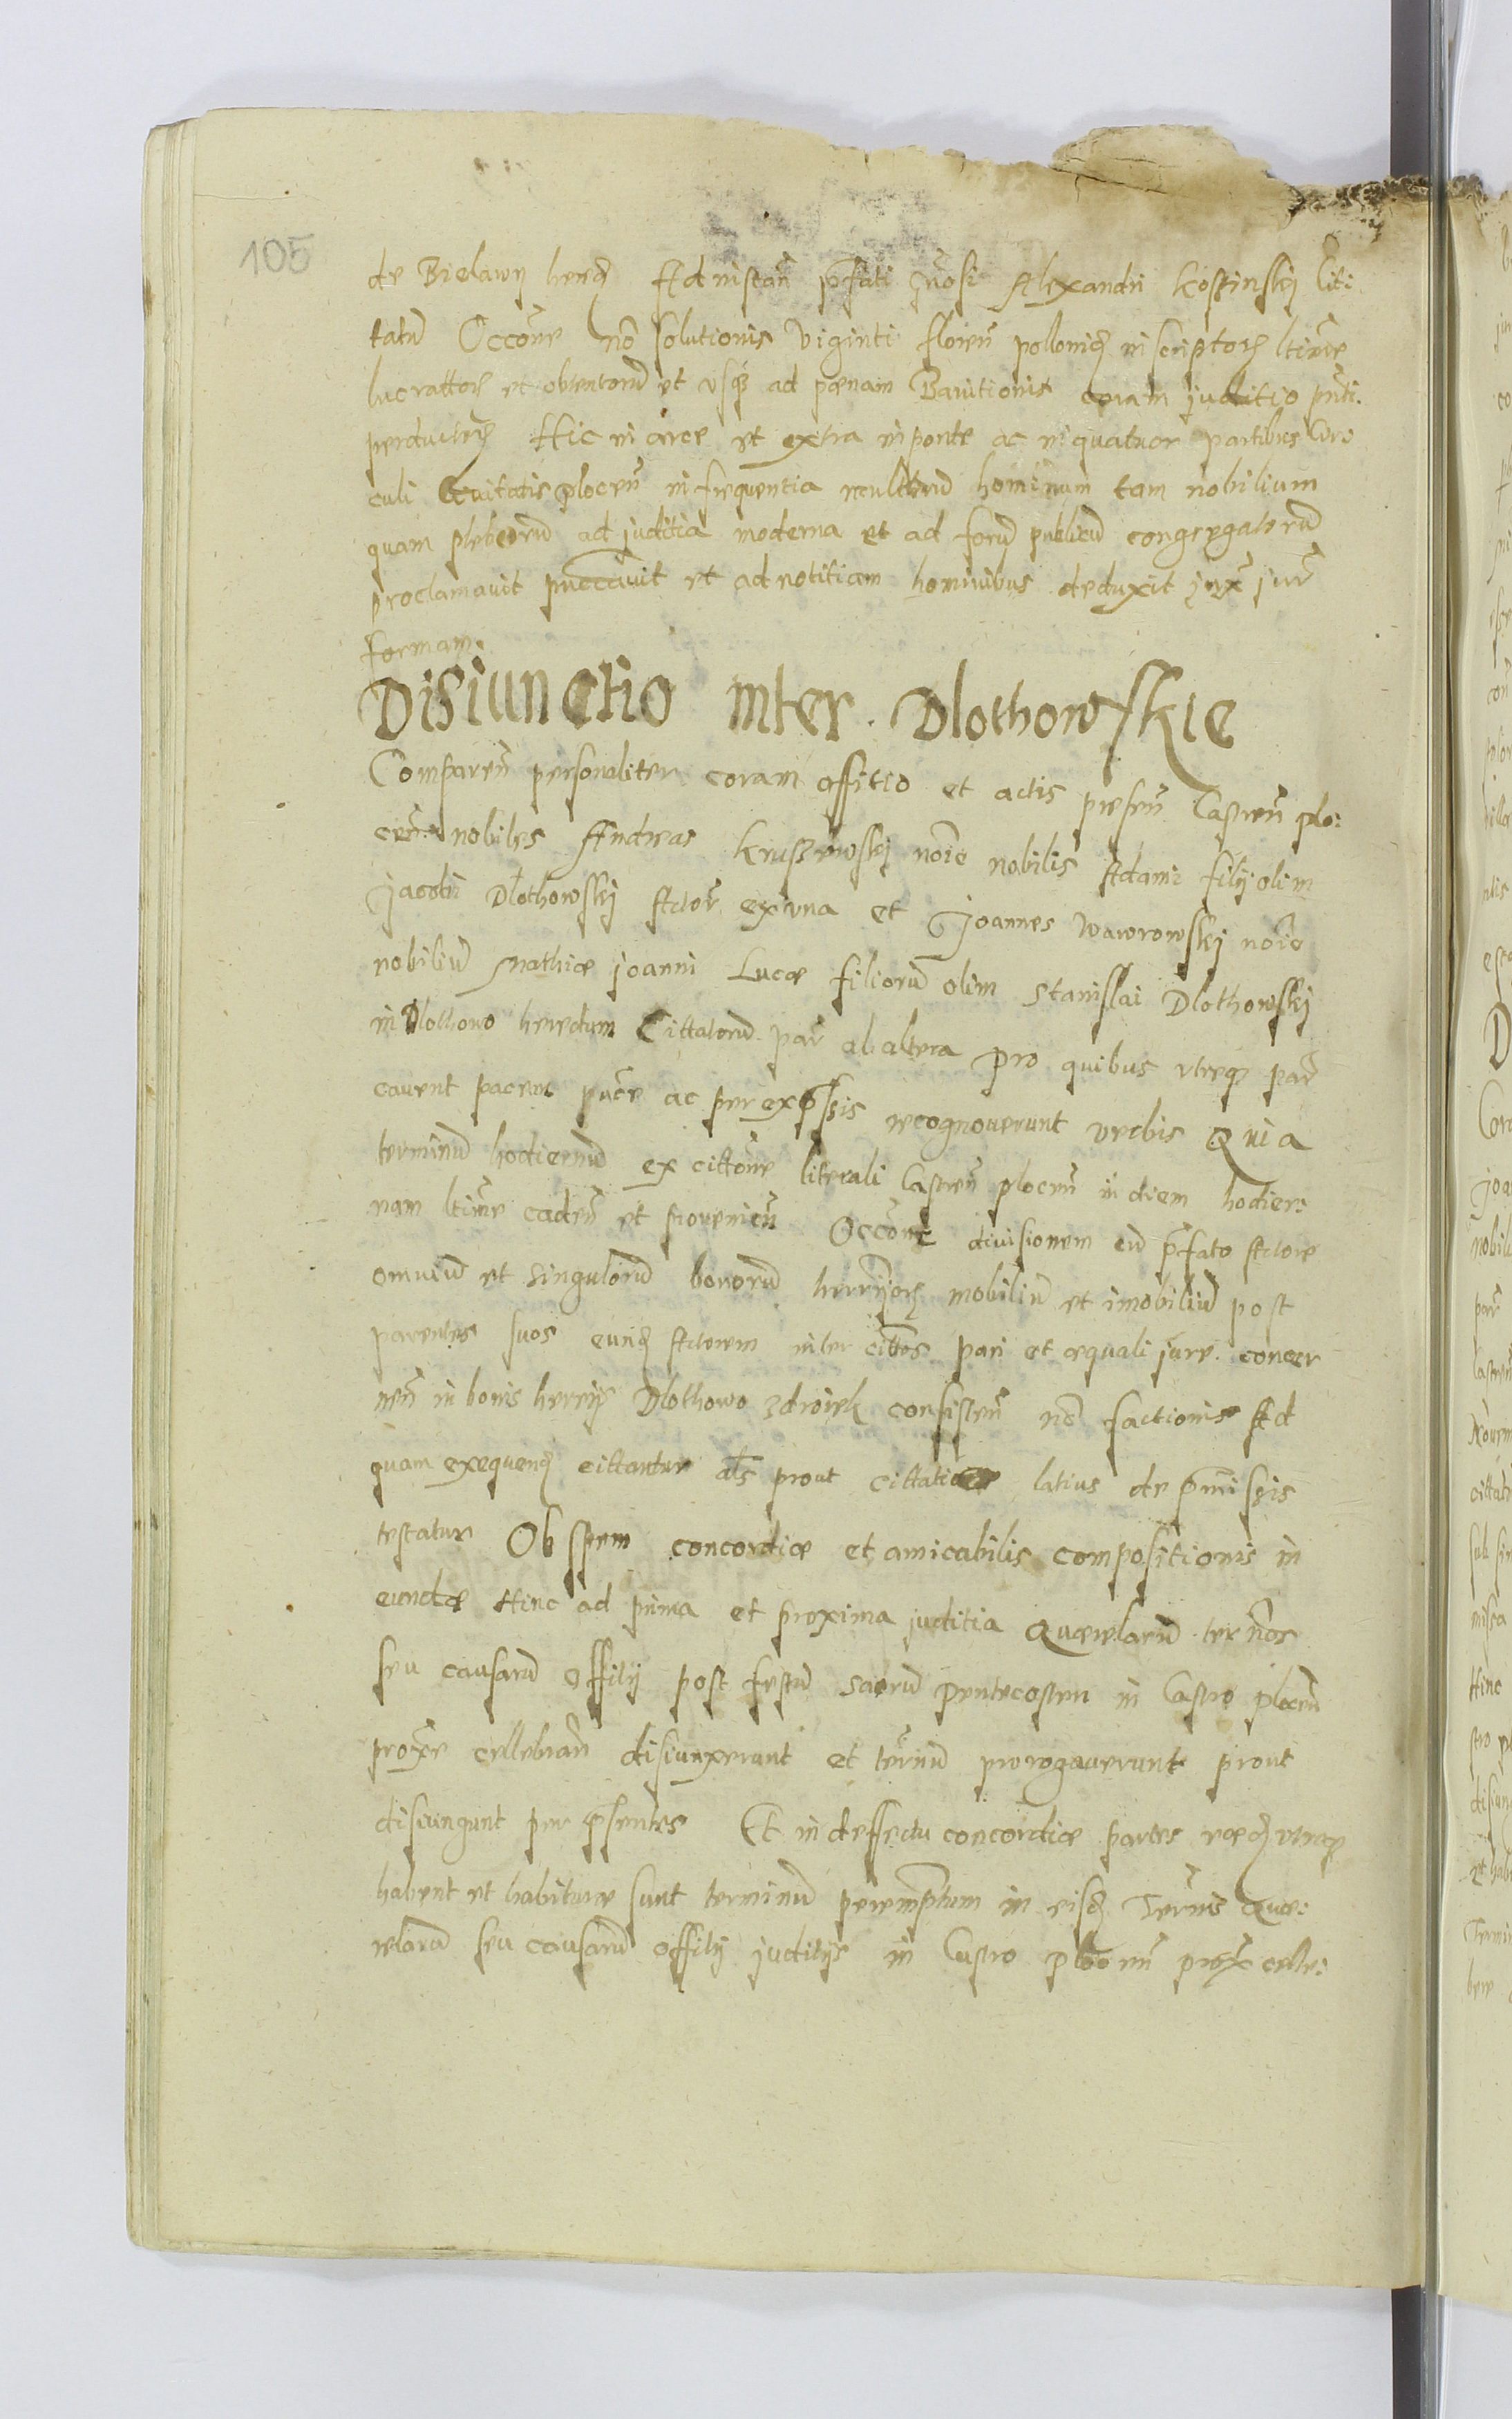 105
de Bielawy hered Ad instan pfati gnosi Alexandri Kossinskj Citi:
tatū Occōne nō solutionis Viginti floren pollonic in scriptor ltīme
lucrattor et obtentorū et vsq ad pœnam Banitionis coram juditio pnti:
perductor Hic in arce et extra in ponte ac in quatuor partibus Cir:
culi Ciuitatis plocen in frequentia multorū hominum tam nobilium
quam plebeorū ad juditia moderna et ad forū publicū congregatorū
proclamauit puccauit et ad notitiam hominibus deduxit jux jur
formam.
Disiunctio inter Dlothowskie
Comparen personaliter coram offitio et actis præsen Castren plo:
cen: nobiles Andreas Kruszewskj noīe nobilis Adami filij olim
Jacobi Dlothowskj Actor ex vna et Joannes Wawrowskj noīe
nobiliū Mathiæ Joanni Lucæ filiorū olim Stanislai Dlothowskj
in Dlothowo heredum Cittatorū par ab altera pro quibus vtreq par
cauent pacem puce ac per expssis recognouerunt verbis Quia
terminū hodiernū ex cittōne literali Castren plocen in diem hodier:
nam ltīme caden et prouenien Occōne diuisionem cū pfato Actore
omniū et singulorū bonorū herrijor mobiliū et imobiliū post
parentes suos eund Actorem inter cittos pari et æquali jure concer
nen in bonis herrijs Dlothowo zdroiek consisten nō factionis Ad
quam exequend cittantur als prout cittatio latius de pmissis
testatur Ob spem concordiæ et amicabilis compositionis in
eundæ Hinc ad prima et proxima juditia Quærelarū ternos
seu causarū offitij post festū Sacrū Pentecosten in Castro plocen
proxe cellebran disiunxerunt et ternū prorogauerunt prout
disiungunt per psentes Et in deffectu concordiæ partes eæd vtræq
habent et habituræ sunt terminū peremptum in eisd Ternis Quæ:
relarū seu causarū offitij juditijs in Castro plocen prox celle: